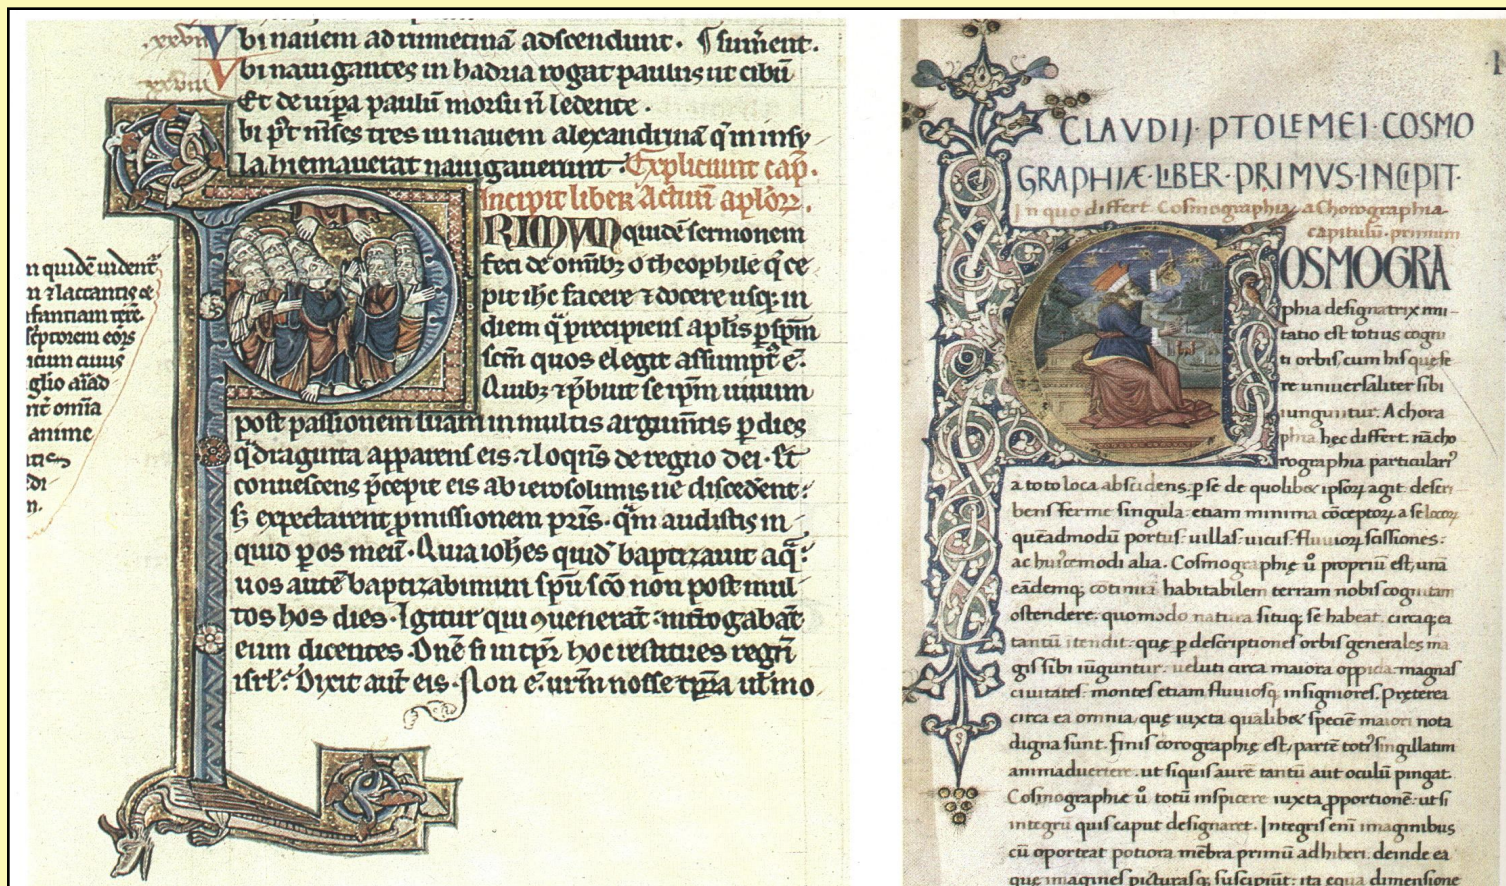 .xxvii Vbi nauem ad numetinā adscendunt. ¶ sum̄ent.
xxviii Vbi nauigantes in hadria rogat paulus ut cibū
Et de uipa paulū morsu ñ ledente.
bi p̉t m̄ses tres in nauem alexandrinā q̄ in insu
la hiemauerat nauigauerunt. Expliciunt cap̄.
Incipit liber Actuū aplōꝝ.
PRIMVM quidē sermonem
feci de om̄ibꝫ o theophile q̄ ce
pit ihc facere ⁊ docere usqꝫ in
diem q̄ precipiens aplis p sp̄m
sc̄m quos elegit assumpt̉ ē.
Quibꝫ ⁊ p̄buit se ip̄m uiuum
post passionem suam in multis argum̄tis p dies
q̄draginta apparens eis ⁊ loqn̄s de regno dei. Et
conuescens p̄cepit eis ab ierosolimis ne discedent̉:
sꝫ expectarent ꝓmissionem pr̄is. q̄m audistis in
quid p os meū. Quia ioh̄es quid̄ baptizauit aq̄:
uos autē baptizabimini sp̄u sc̄o non post mul
tos hos dies. Igitur qui ꝯuenerāt: int̉rogabāt
eum dicentes. Dn̄e si in tp̄r hoc restitues regn̄
isrl̄? Dixit aut̄ eis. Non ē ur̄m nosse tp̄ra ul̄ mo
n quidē uident̉
n ⁊ lactantis ē
fantiam
anime
CLAVDIJ · PTOLEMEI · COSMO
GRAPHIÆ · LIBER · PRIMVS · INCIPIT ·
In quo differt Cosmographia a Chorographia
capitulū · primum
COSMOGRA
phia designatrix imi-
tatio est totius cogni
ti orbis cum his que fe
re uniuersaliter sibi
iunguntur. A choro
phia hec differt. nā cho
rographia particulari᷒
a toto loca abscidens. p se de quolibet ipsoꝝ agit. descri
bens ferme singula: etiam minima cōceptoꝝ a se locoꝝ
queādmodū portus: uillas: uicus: fluuioꝝ scissiones:
ac huiꝰcemodi alia. Cosmographię ů propriū est, unā
eādemqꝫ cōtinuā habitabilem terram nobis cognitam
ostendere: quomodo natura situqꝫ se habeat. circaqꝫ ea
tantū itendit: quę p descriptiones orbis generales ma
gis sibi iūguntur: ueluti circa maiora oppida: magnas
ciuitates: montes etiam fluuiosqꝫ insigniores. Pręterea
circa ea omnia, quę iuxta quālibet speciē maiori nota
digna sunt. finis corographię est, partē totiꝰ singillatim
animaduertere. ut siquis aurē tantū aut oculū pingat.
Cosmographie ů totū inspicere iuxta ꝓportionē: ut si
integrū quis caput designaret. Integris enī imaginibus
cū oporteat potiora mēbra primū adhiberi. deinde ea
que imagines picturasqꝫ suscipiūt: ita equa dimensione